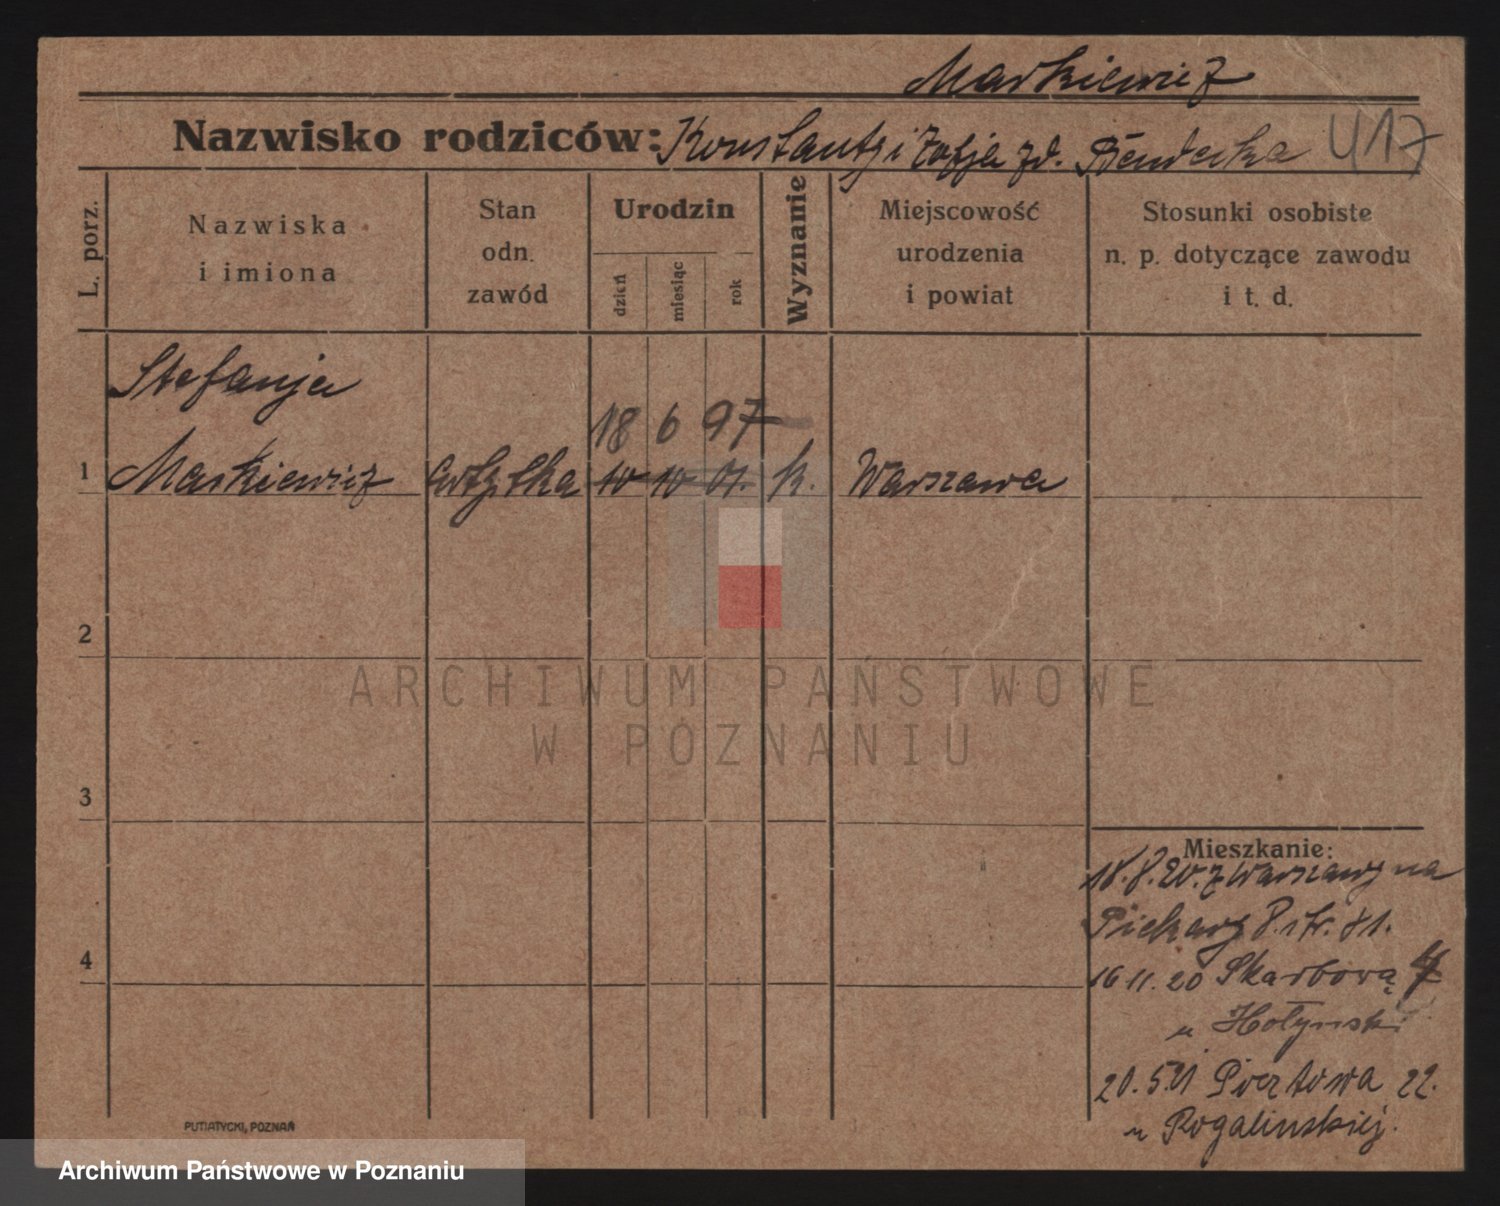 Markiewicz
Nazwisko rodziców: Konstanty i Zofja zd. 417
L. porz.
Nazwiska
i imiona
Stan
odn.
zawód
Urodzin
dzień
miesiąc
rok
Wyznanie
Miejscowość
urodzenia
i powiat
Stosunki osobiste
n. p. dotyczące zawodu
i t. d.
Stefanja
18 6 97
1 Markiewicz artystka 10 10 01. k. Warszawa
2
3
4
Mieszkanie:
18.8.20. z Warszawy na
Piekary P. str. 81.
16 11. 20 Skarbową
u Hołynski
20. 5. 21 Pocztowa 22.
u Rogalinskiej.
PUTIATYCKI, POZNAŃ
ARCHIWUM PAŃSTWOWE
W POZNANIU
Archiwum Państwowe w Poznaniu